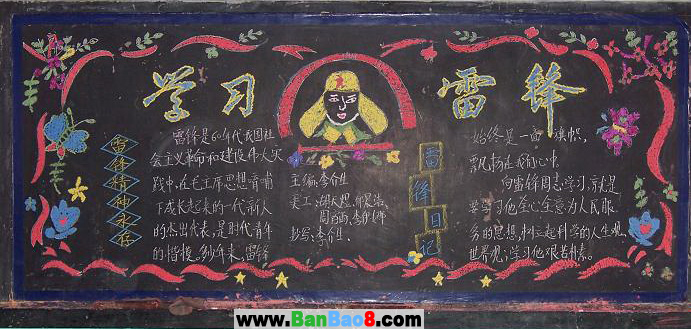 学习 雷锋
雷锋精神永存
雷锋是60年代我国社
会主义革命和建设伟大实
践中,在毛主席思想哺育
下成长起来的一代新人
的杰出代表,是时代青年
的楷模。多少年来,雷锋
主编:李
美工:
抄写:李
雷锋日记
始终是一面旗帜,
飘扬在我们心中。
向雷锋同志学习,就是
要学习他全心全意为人民服
务的思想,树立起科学的人生观,
世界观;学习他艰苦朴素。
www.BanBao8.com